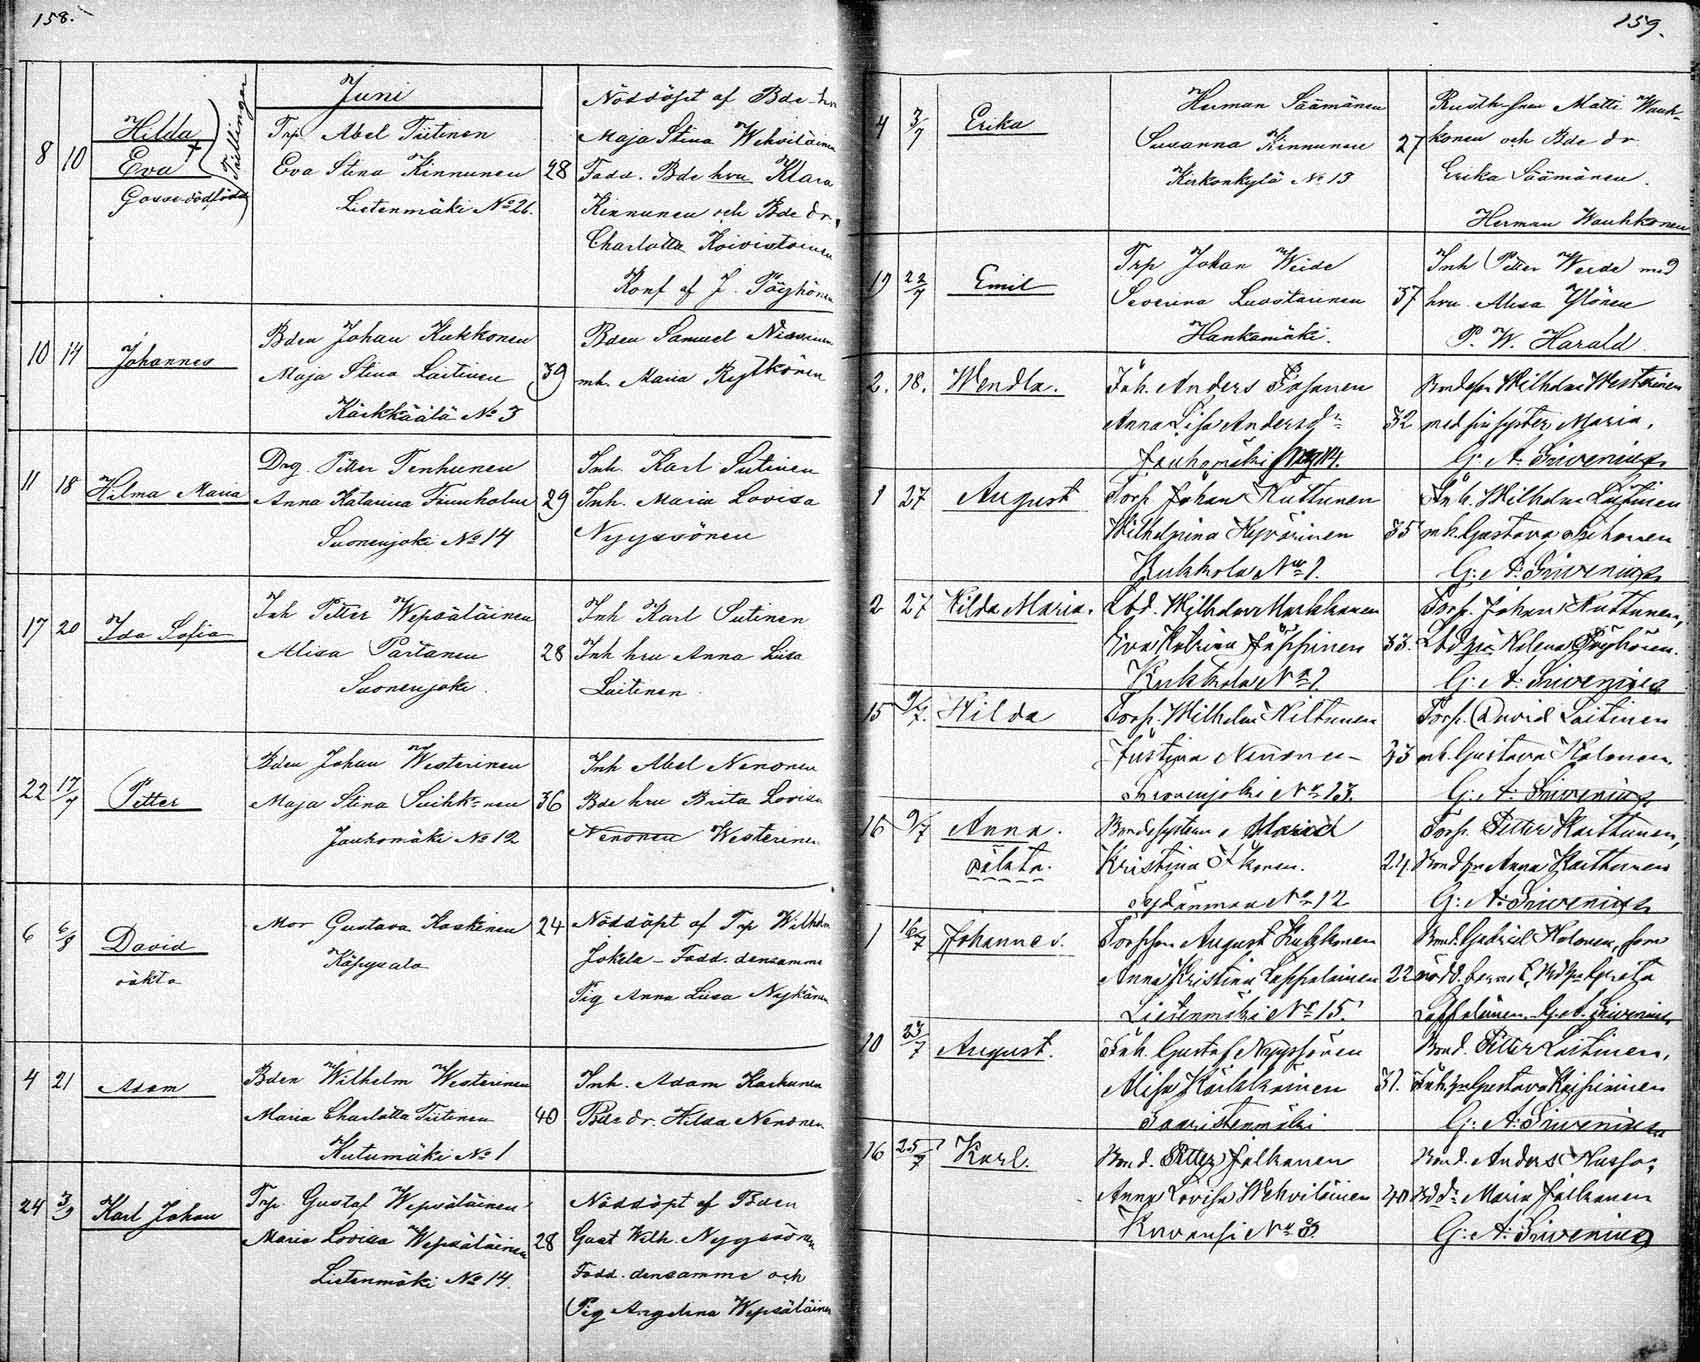 158.
Juni
8 10 Hilda
Eva †
Gosse dödfödd
Trillingar
Trp Abel Tiitinen
Eva Stina Kinnunen 28
Lietenmäki No 26.
Nöddöpt af Bde hru
Maja Stina Wehviläinen
Fadd. Bde hru Klara
Kinnunen och Bde dr.
Charlotta Koivistoinen
Konf af J. Pöyhönen
10 14 Johannes
Bden Johan Kukkonen
Maja Stina Laitinen 39
Kärkkäälä No 3
Bden Samuel Nissinen
mh. Maria Rytkönen
11 18 Hilma Maria
Drg. Petter Tenhunen
Anna Katarina Fruuholm 29
Suonenjoki No 14
Inh. Karl Sutinen
Inh. Maria Lovisa
Nyyssönen
17 20 Ida Sofia
Inh Petter Wepsäläinen
Alisa Partanen 28
Suonenjoki.
Inh Karl Sutinen
Inh hru Anna Liisa
Laitinen.
22 17/7 Petter
Bden Johan Westerinen
Maja Stina Suihkonen 36
Jauhomäki No 12
Inh Abel Nenonen
Bde hru Brita Lovisa
Nenonen Westerinen
6 6/8 David
oäkta
Mor Gustava Koskinen 24
Käpysalo
Nöddöpt af Trp Wilhelm
Jokela - Fadd. densamme
Pig Anna Liisa Nykänen
4 21 Adam
Bden Wilhelm Westerinen
Maria Charlotta Tiitinen 40
Kutumäki No 1
Inh. Adam Karhunen
Bde dr. Hilda Nenonen
24 3/9 Karl Johan
Trp. Gustaf Wepsäläinen
Maria Lovisa Wepsäläinen 28
Lietenmäki No 14.
Nöddöpt af Bden
Gust Wilh. Nyyssönen
Fadd. densamme och
Pig Angelina Wepsäläinen
159.
4 3/7 Erika
Herman Säämänen
Susanna Kinnunen 27
Kirkonkylä No 13
Matti Wauh-
konen och Bde dr.
Erika Säämänen.
Herman Wauhkonen
19 22/7 Emil
Trp Johan Weide
Severina Luostarinen 37
Hankamäki.
Inh Petter Weide med
hru. Alisa Ylönen
P. W. Harald.
2. 18. Wendla.
Inh. Anders Pasanen
Anna Lisa Andersdr 32
Jauhomäki No 14.
Wilhelm Westerinen
med sin syster Maria.
G: A: Sivenius
1 27 August
Torp. Johan Kuttunen
Wilhelmina Hyvärinen 35
Kukkola No 1.
Inh. Wilhelm Laitinen
mh. Gustava Tiihonen
G: A: Sivenius
2 27 Hilda Maria.
Lbd. Wilhelm Markkanen
Eva Katrina Jäppinen 33.
Kukkola No 1.
Torp. Johan Kuttunen,
Helena Pöyhönen.
G: A: Sivenius
15 Hilda
Torp. Wilhelm Hiltunen
Justina Nenonen 33
Suonenjoki No 13.
Torp. David Laitinen
mh. Gustava Halonen.
G: A: Sivenius
16 9/7 Anna.
oäkta.
Maria
Kristina 24.
No 12
Torp. Petter Karttunen,
Anna Karttunen
G: A: Sivenius
1 16/7 Johannes.
Torpson August Kukkonen
Anna Kristina Lappalainen 22
Lietenmäki No 15.
Bond. Gabriel Halonen, som
Greta
Lappalainen. G. A. Sivenius
10 23/7 August.
Inh. Gustaf Nyyssönen
Alisa Kärkkäinen 31.
Saaristenmäki
Bond. Petter Laitinen,
Gustava
G: A: Sivenius
16 25/7 Karl.
Bond. Petter Jalkanen
Anna Lovisa Wehviläinen 40
Kuvansi No 3.
Bond. Anders Husso,
Maria Jalkanen
G: A: Sivenius